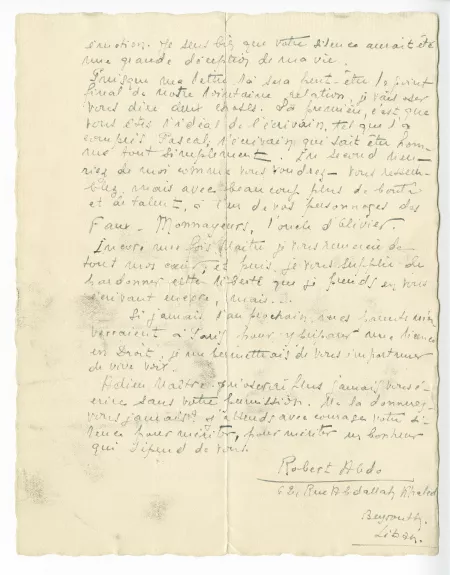 émotion. Je sens bien que votre silence aurait été
une grande déception de ma vie.
Puisque ma lettre ici sera peut-être le point
final de notre lointaine relation, je vais oser
vous dire deux choses. La première, c'est que
vous êtes l'idéal de l'écrivain, tel que l'a
compris Pascal, l'écrivain qui sait être hom-
me tout simplement. En second
de moi comme vous voudrez vous ressem-
blez, mais avec beaucoup plus de bonté
et de talent, à l'un de vos personnages des
Faux-Monnayeurs, l'oncle d'Olivier.
Encore une fois Maître je vous remercie de
tout mon cœur, et puis je vous supplie de
pardonner cette liberté que je prends en vous
écrivant encore, mais...
Si jamais l'an prochain, mes parents m'en-
verraient à Paris pour préparer une licence
en Droit, je me permettrais de vous importuner
de vive voix.
Adieu Maître, je n'oserai plus jamais vous é-
crire sans votre permission. Me la donnerez-
vous jamais? J'attends avec courage votre si-
lence pour mériter, pour mériter un bonheur
qui dépend de vous.
Robert Abdo
62, Rue Abdallah Khaled
Beyrouth.
Liban.